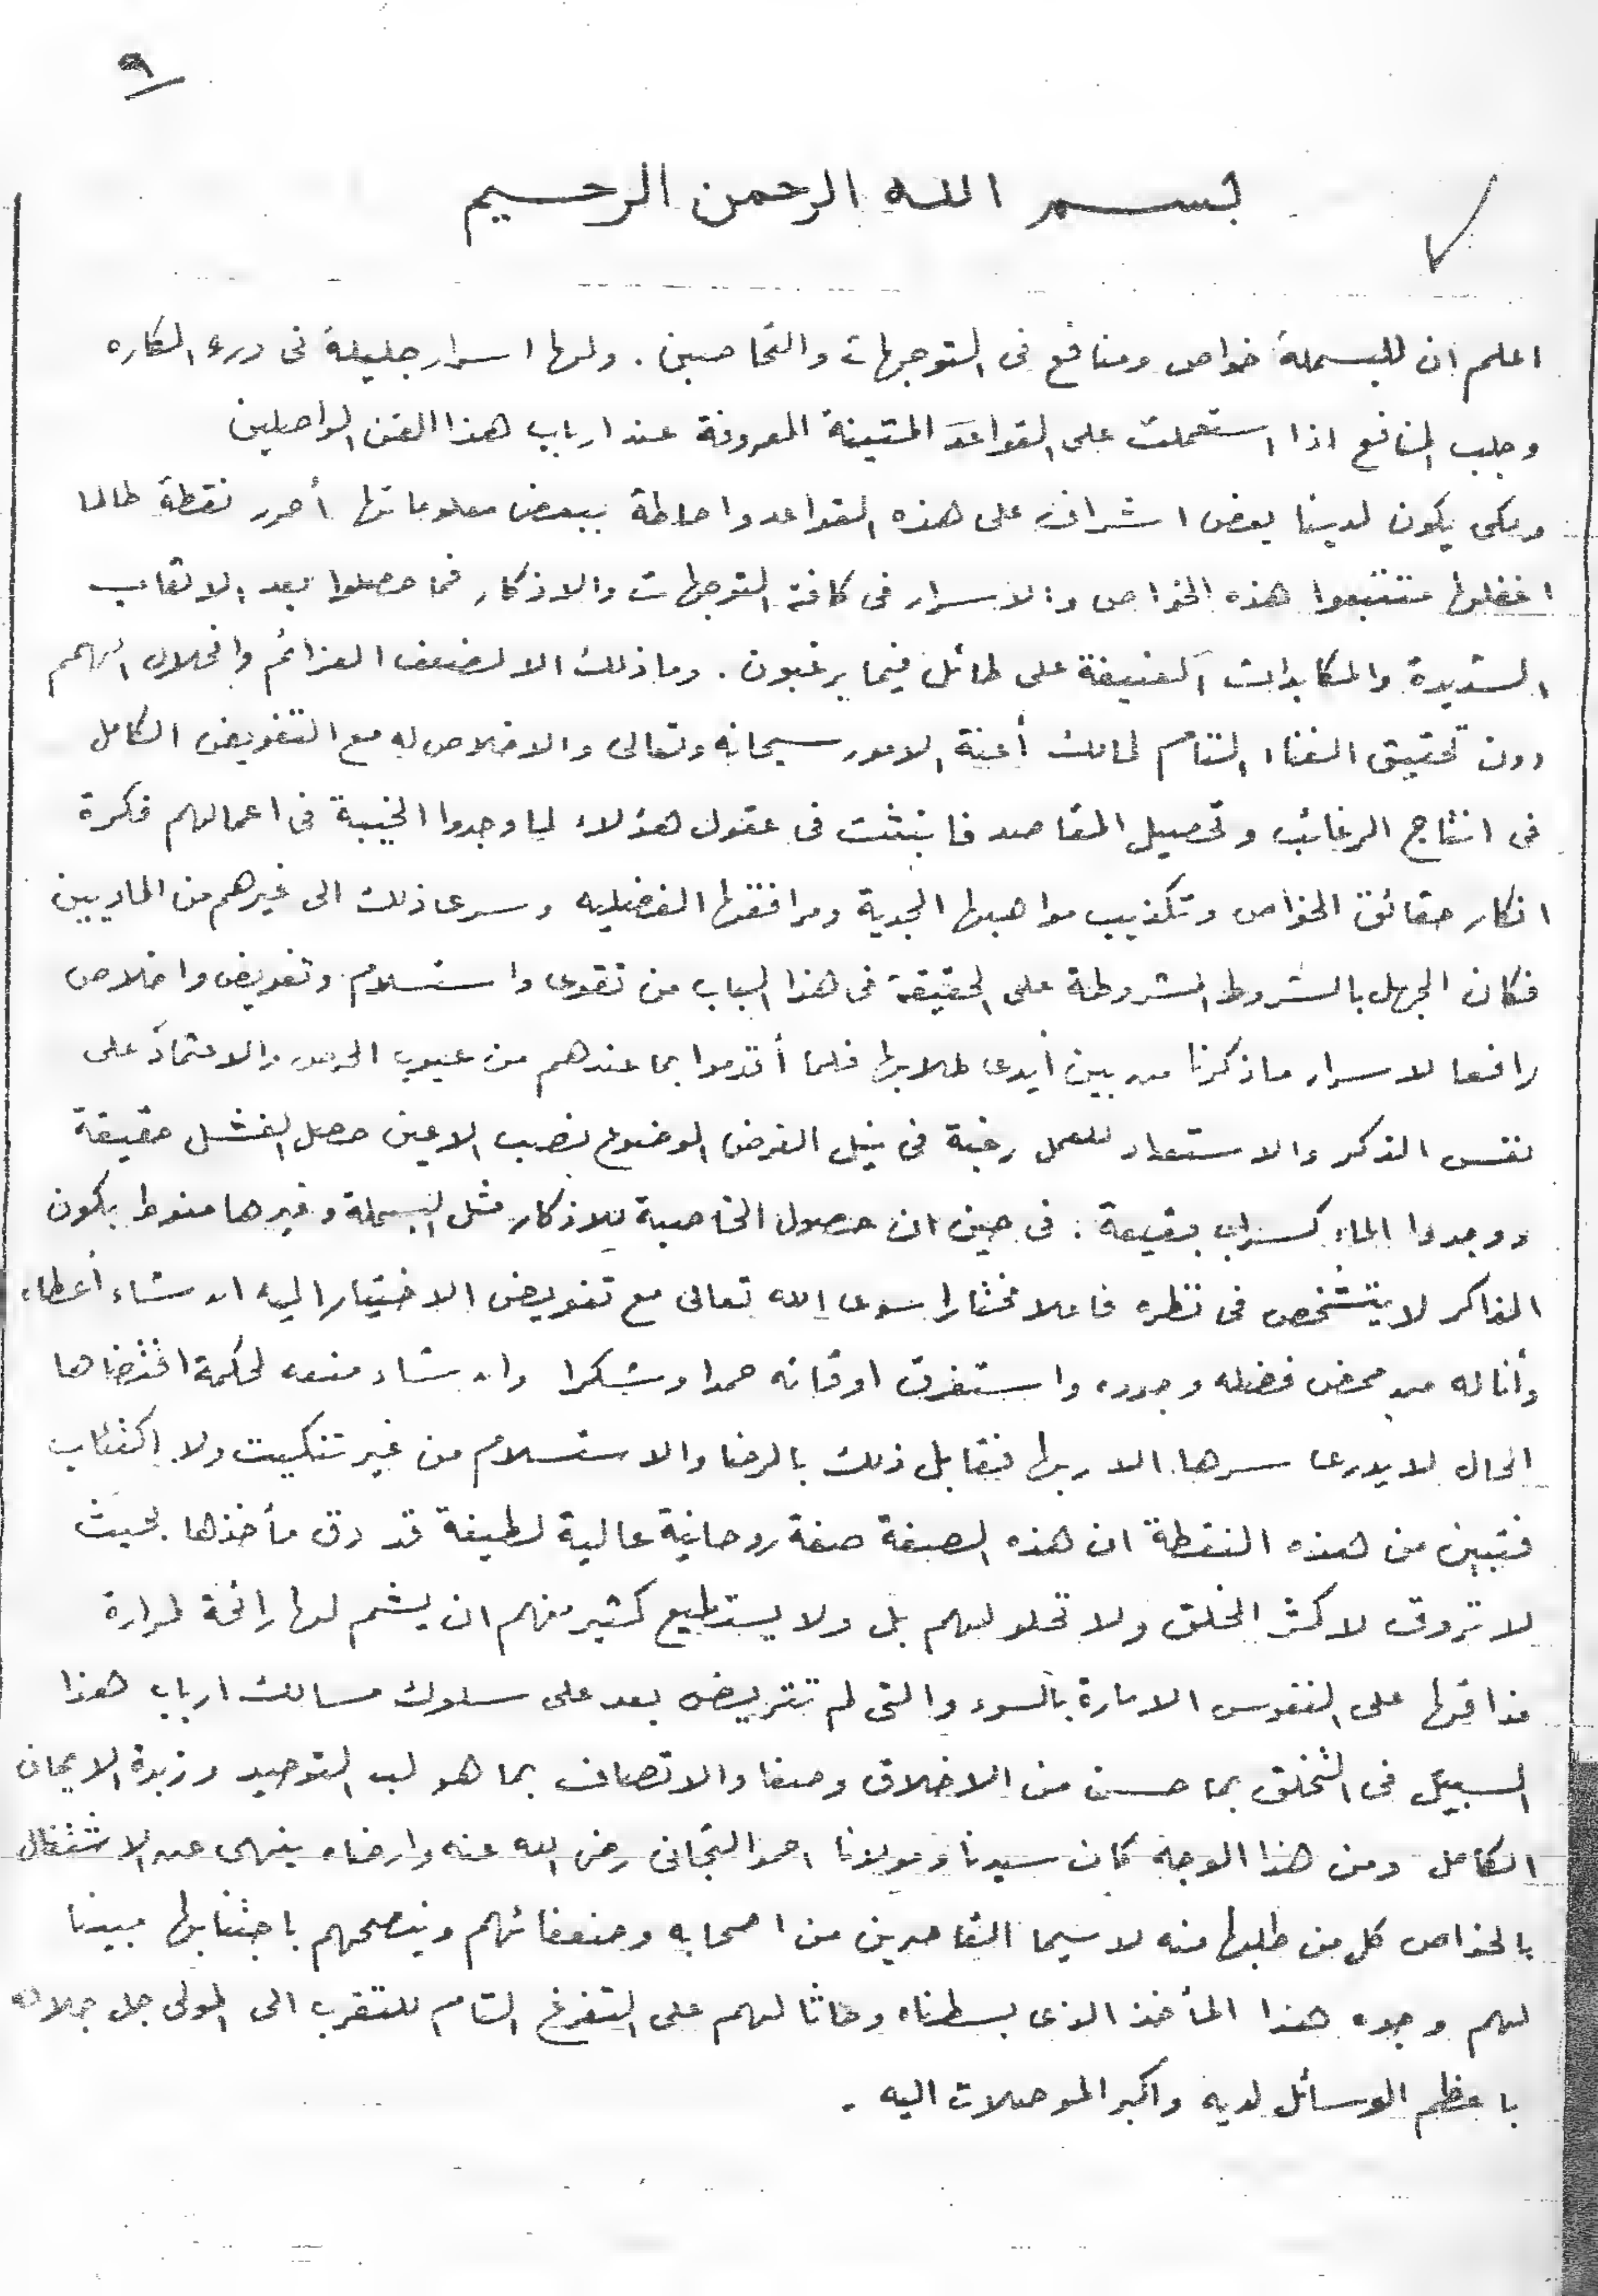 ٩
بسم الله الرحمن الرحيم
اعلم ان للبسملة خواص ومنافع فى التوجهات والتحاصين . ولها اسرار جليلة فى درء المكاره
وجلب المنافع اذا استعملت على القواعد المتينة المعروفة عند ارباب هذا الفن الواصلين
ولكى يكون لدينا بعض اشراف على هذه القواعد واحاطة ببعض معلوماتها أحرر نقطة طالما
اغفلها متتبعوا هذه الخواص والاسرار فى كافة التوجهات والاذكار فما حصلوا بعد الاتعاب
الشديدة والمكابدات العنيفة على طائل فيما يرغبون . وما ذلك الا لضعف العزائم وانحلال الهمم
دون تحقيق الفناء التام لمالك أعنة الامور سبحانه وتعالى والاخلاص له مع التفويض الكامل
فى انتاج الرغائب وتحصيل المقاصد فانبثت فى عقول هؤلاء لما وجدوا الخيبة فى اعمالهم فكرة
انكار حقائق الخواص وتكذيب مواهبها الجدية ومرافقها الفضليه وسرى ذلك الى غيرهم من الماديين
فكان الجهل بالشروط المشروطة على الحقيقة فى هذا الباب من تقوى واستسلام وتفويض واخلاص
رافعا لاسرار ما ذكرنا من بين أيدى طلابها فلما أقدموا بما عندهم من عيوب الحرص والاعتماد على
نفس الذكر والاستعداد للعمل رغبة فى نيل الغرض الموضوع نصب الاعين حصل الفشل حقيقة
ووجدوا الماء كسراب بقيعة : فى حين ان حصول الخاصية للاذكار مثل البسملة وغيرها منوط بكون
الذاكر لا يتشخص فى نظره فاعلا مختارا سوى الله تعالى مع تفويض الاختيار اليه ان شاء أعطاه
وأناله من محض فضله وجوده واستغرق اوقاته حمدا وشكرا وان شاء منعه لحكمة اقتضاها
الحال لا يدرى سرها الا ربها فيقابل ذلك بالرضا والاستسلام من غير تنكيت ولا اكتئاب
فتبين من هذه النقطة ان هذه الصفة صفة روحانية عالية لطيفة قد دق مأخذها بحيث
لا تروق لاكثر الخلق ولا تحلو لهم بل ولا يستطيع كثير منهم ان يشم لها رائحة لمرارة
مذاقها على النفوس الامارة بالسوء والتى لم تتريض بعد على سلوك مسالك ارباب هذا
السبيل فى التخلق بما حسن من الاخلاق وصفا والاتصاف بما هو لب التوحيد وزبدة الايمان
الكامل ومن هذا الوجه كان سيدنا ومولانا احمد التجانى رضى الله عنه وارضاه ينهى عن الاشتغال
بالخواص كل من طلبها منه لا سيما القاصرين من اصحابه وضعفائهم وينصحهم باجتنابها مبينا
لهم وجوه هذا المأخذ الذى بسطناه وحاثا لهم على التفرغ التام للتقرب الى المولى جل جلاله
باعظم الوسائل لديه واكبر الموصلات اليه .